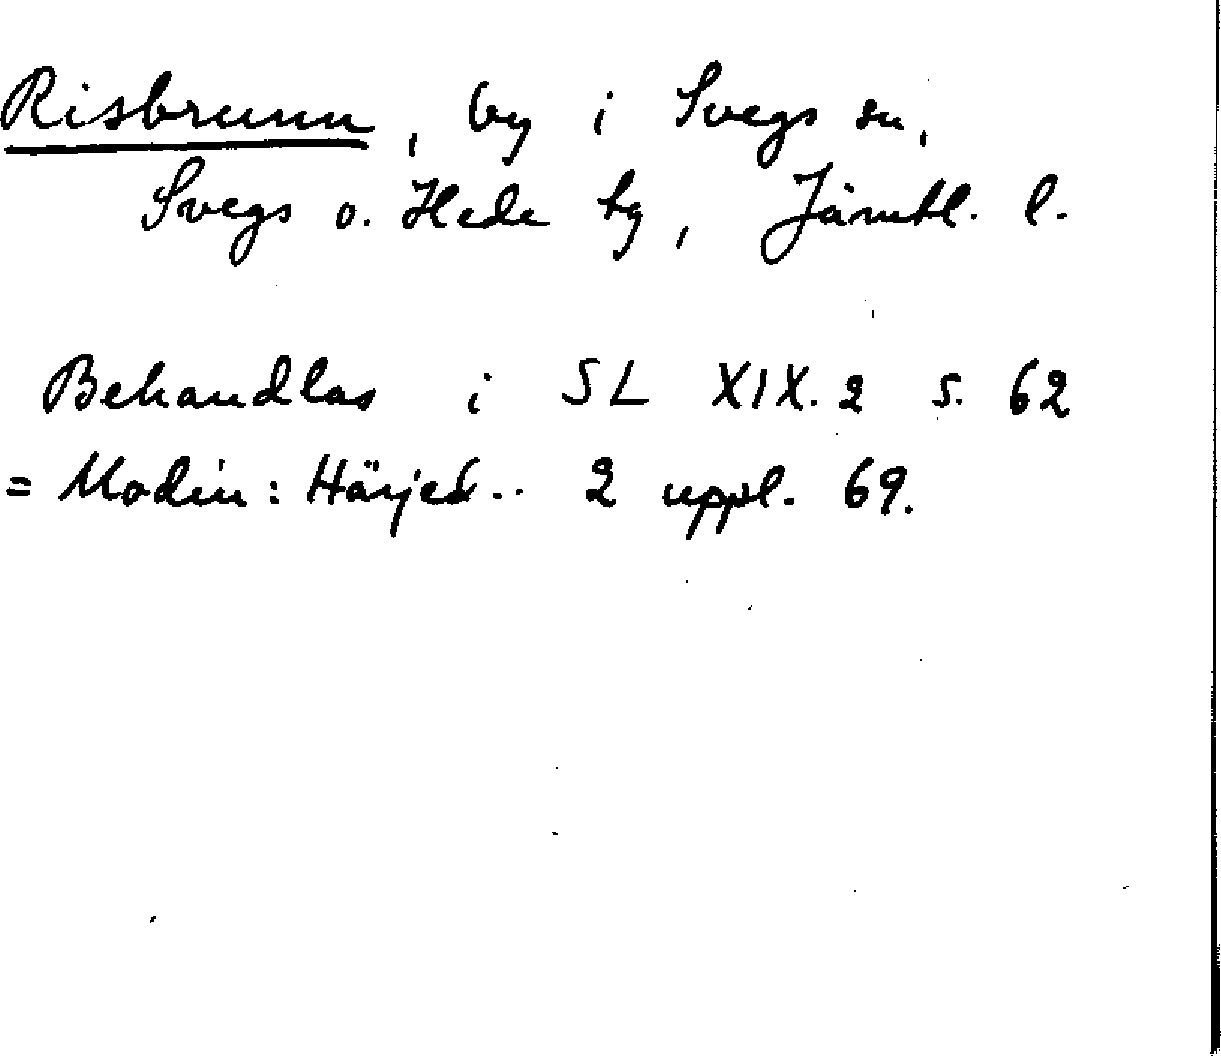 Risbrunn, by i Svegs sn,
Svegs o. Hede tg, Jämtl. l.
Behandlas i SL XIX. 2 s. 62
= Modin: Härjed.. 2 uppl. 69.